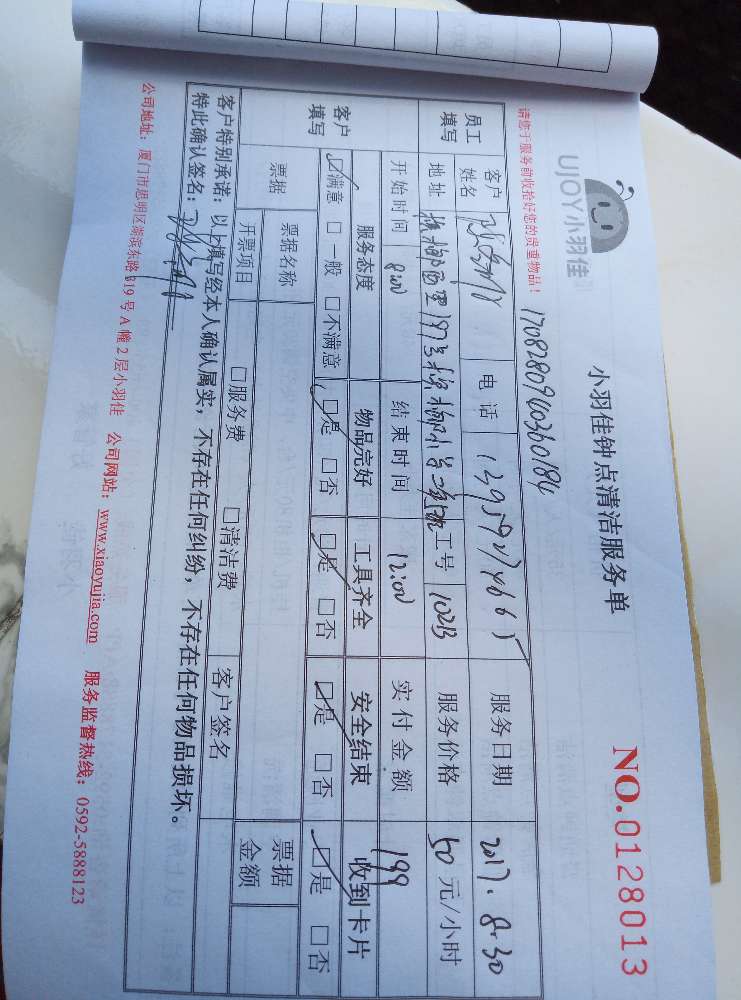 UJOY小羽佳
小羽佳钟点清洁服务单
NO.0128013
请您于服务前收拾好您的贵重物品！
1708280940360184
员工填写
客户姓名 电话 13959274665 服务日期 2017.8.30
地址 工号 1023 服务价格 50 元/小时
开始时间 8:00 结束时间 12:00 实付金额 199
客户填写
服务态度 物品完好 工具齐全 安全结束 收到卡片
☑满意 □一般 □不满意 ☑是 □否 ☑是 □否 ☑是 □否 ☑是 □否
票据 票据名称 票据金额
开票项目 □服务费 □清洁费 客户签名
客户特别承诺：以上填写经本人确认属实，不存在任何纠纷，不存在任何物品损坏。
特此确认签名：
公司地址：厦门市思明区湖滨东路319号A幢2层小羽佳 公司网站：www.xiaoyujia.com 服务监督热线：0592-5888123